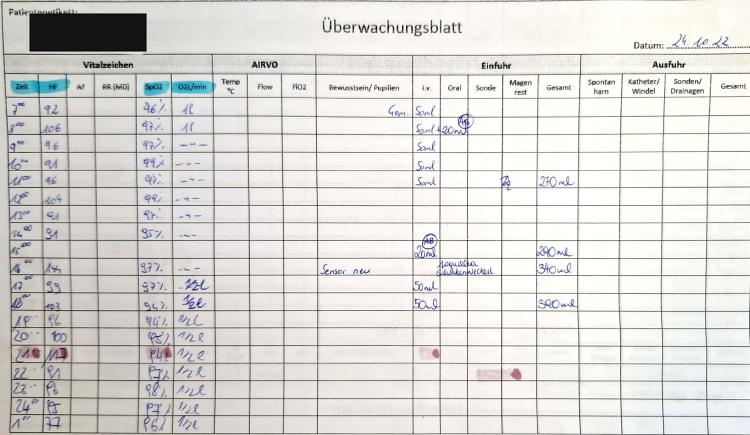 Patientenetikett:
Überwachungsblatt
Datum: 24.10.22
Vitalzeichen AIRVO Einfuhr Ausfuhr
Zeit HF AF RR (MD) SpO2 O2L/min Temp °C Flow FiO2 Bewusstsein/ Pupillen i.v. Oral Sonde Magen rest Gesamt Spontan harn Katheter/ Windel Sonden/ Drainagen Gesamt
7⁰⁰ 92 96% 1l 50ml
8⁰⁰ 106 97% 1l 50ml + 20ml AB
9⁰⁰ 96 97% --- 50ml
10⁰⁰ 91 99% --- 50ml
11⁰⁰ 96 97% --- 50ml 270ml
12⁰⁰ 104 99% ---
13⁰⁰ 91 97% ---
14⁰⁰ 91 95% ---
15⁰⁰ AB 20ml 290ml
16⁰⁰ 97% --- Sensor neu 340ml
17⁰⁰ 99 97% 1/2l 50ml
18⁰⁰ 103 94% 1/2l 50ml 390ml
19⁰⁰ 96 94% 1/2l
20⁰⁰ 100 95% 1/2l
21⁰⁰ 117 94% 1/2l
22⁰⁰ 91 97% 1/2l
23⁰⁰ 96 98% 1/2l
24⁰⁰ 95 97% 1/2l
1⁰⁰ 77 96% 1/2l